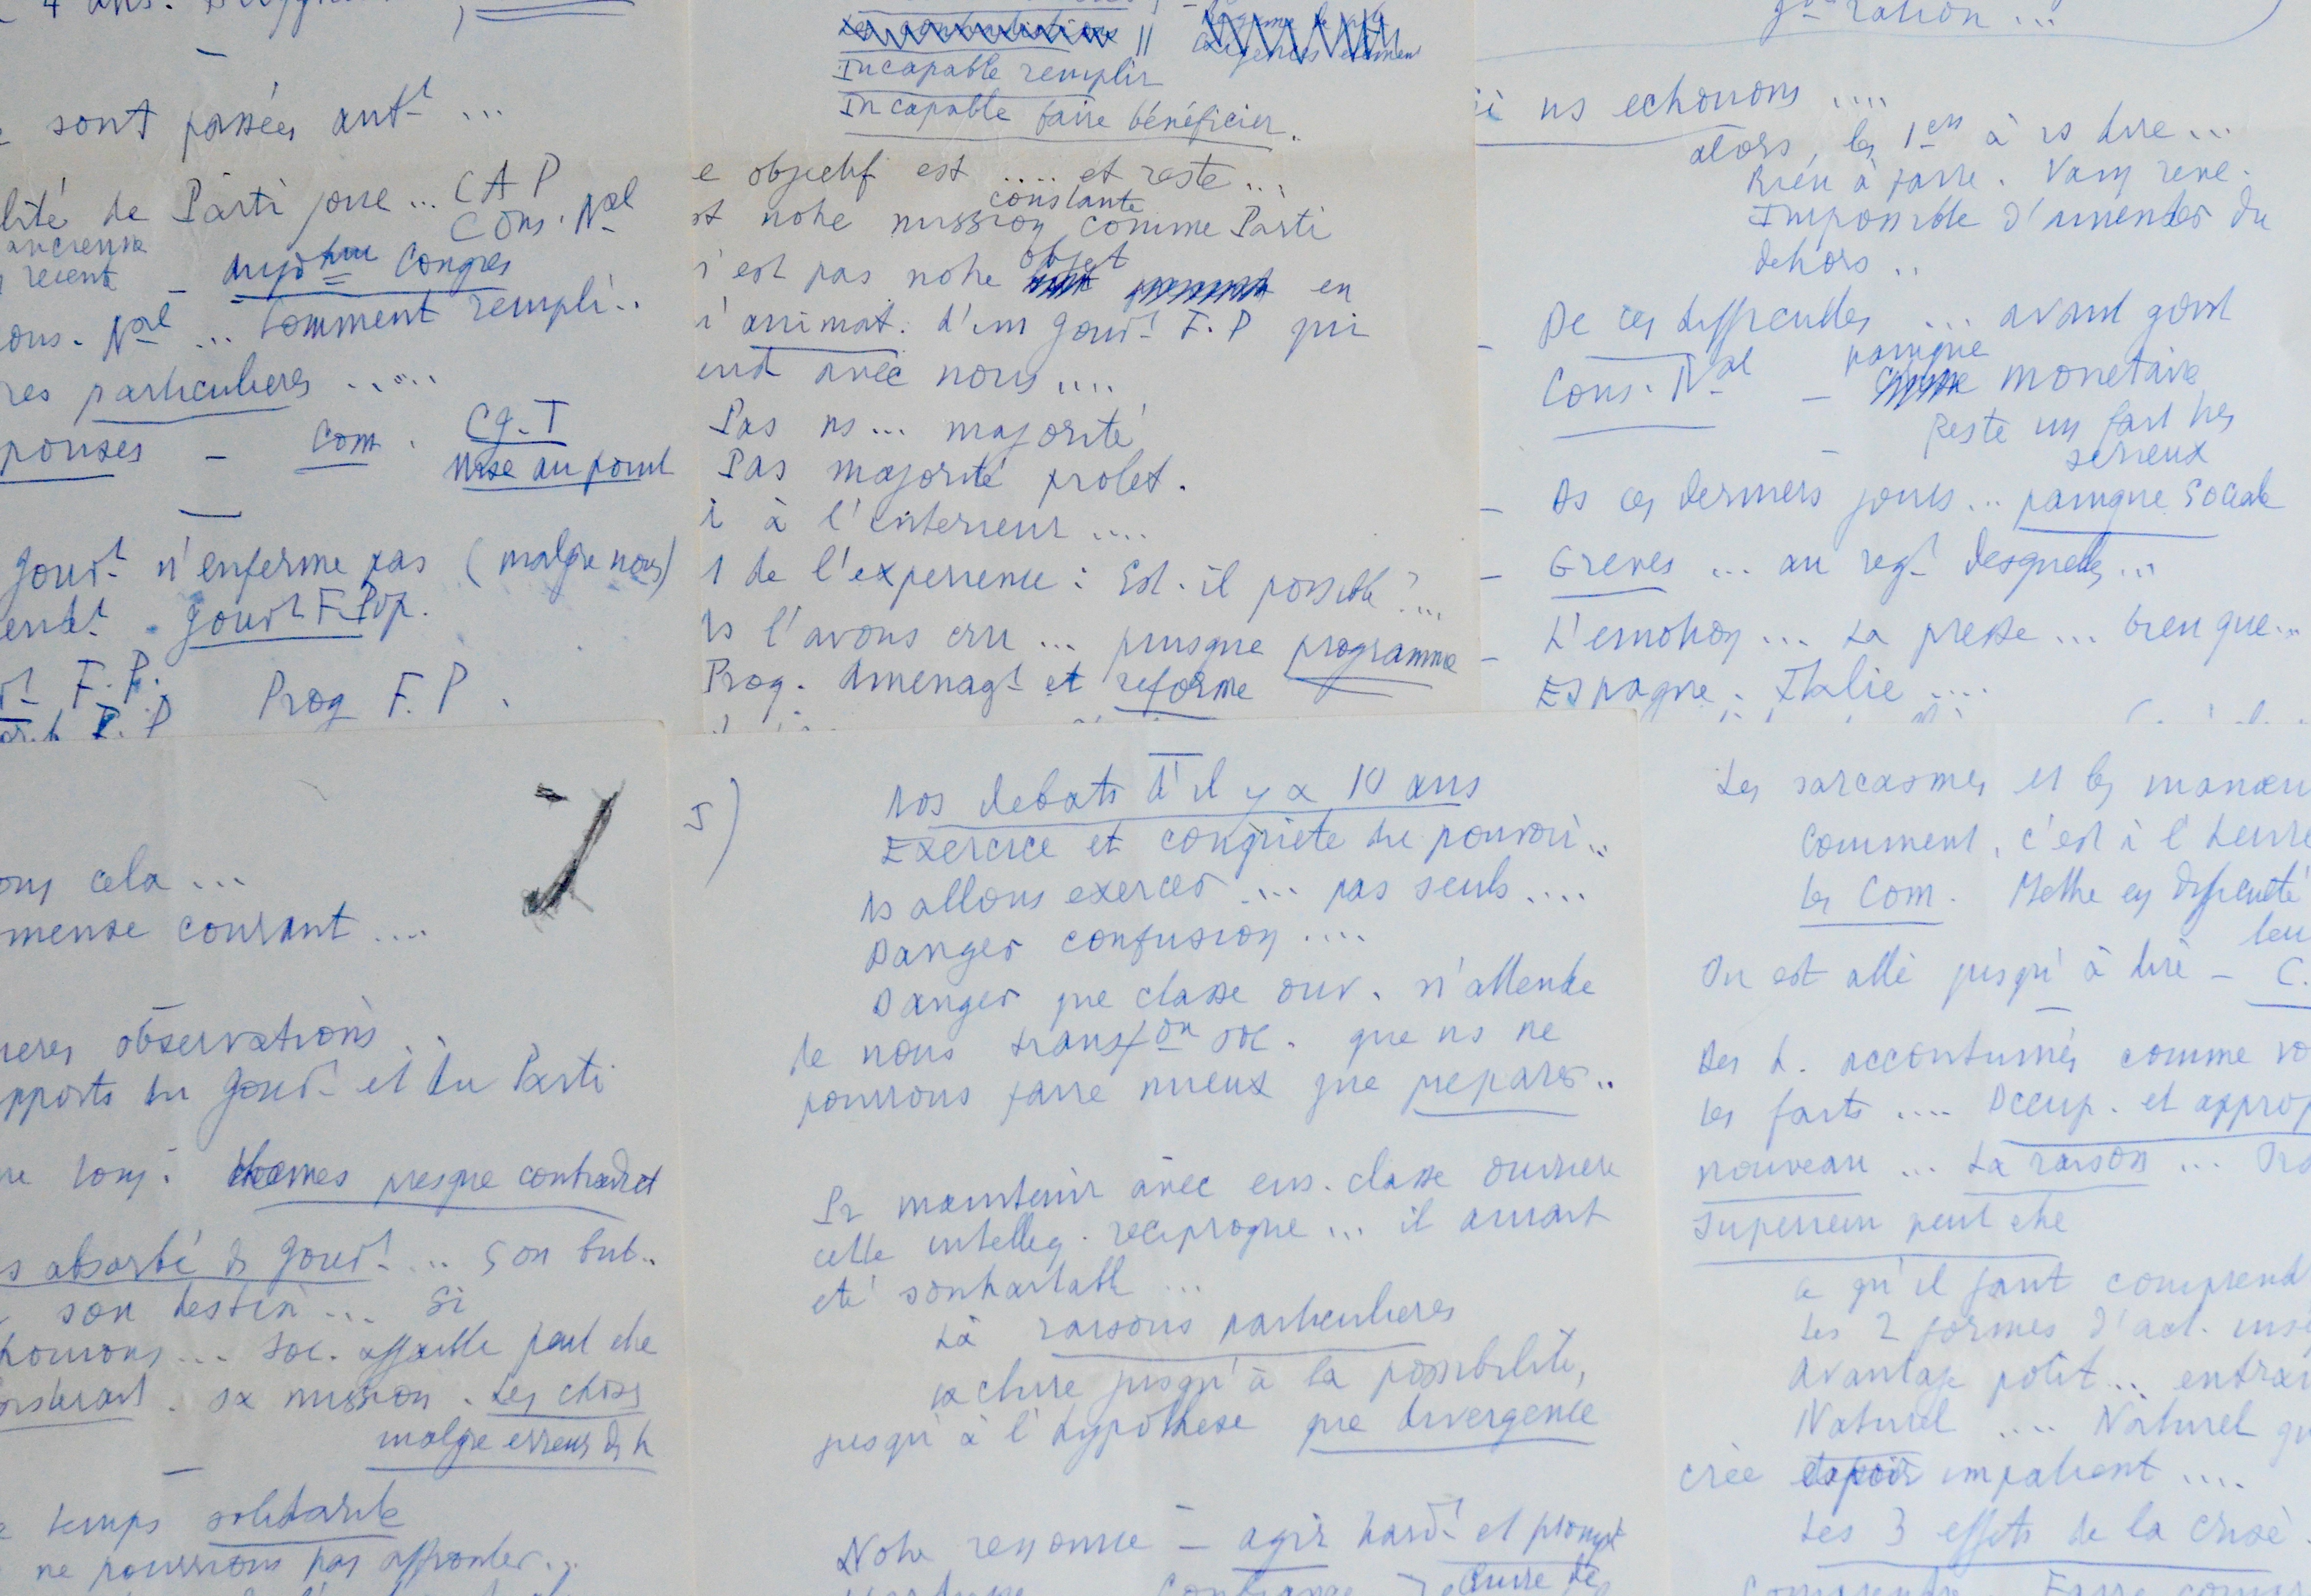 4 ans.
sont passées antt ...
lité de Parti joue ... CAP
Cons. Nal
ancienne
récent - aujd'hui Congrès
ons. Nal ... Comment rempli..
res particulieres ......
ponses - Com. CG.T
Mise au point
Gouvt n'enferme pas (malgre nous)
Gouvt F. Pop.
F.P.
Prog F.P.
Incapable remplir
Incapable faire bénéficier.
e objectif est .... et reste ...
constante
st notre mission comme Parti
objet
n'est pas notre en
l'animat. d'un Gouvt F.P qui
avec nous ....
Pas ns ... majorité
Pas majorité prolet.
i à l'interieur ....
1 de l'experience : Est-il possible ?...
ns l'avons cru ... puisque programme
Prog. Amenagt et reforme
ration ...
si ns echouons ....
alors, les 1ers à ns dire ...
Rien à faire. Vain reve.
Impossible d'amender du
dehors ..
- De ces difficultes ... avant gout
panique
Cons. Nal - monetaire
Reste un fait tres
serieux
- Ds ces derniers jours ... panique sociale
- Greves ... au regt desquelles ...
- L'emotion ... La presse ... bien que ...
Espagne. Italie ....
ons cela ...
mense courant ....
observations ..
pports du Gouvt et du Parti
themes presque contradict
s absorbé ds Gouvt ... son but..
son destin ... si
houons ... Soc. affaiblie peut etre
sa mission. Les choses
malgre erreurs ds h
temps solidarité
ne pourrions pas affronter ..
5)
Nos debats d'il y a 10 ans
Exercice et conquete du pouvoir ..
ns allons exercer ... pas seuls ....
Danger confusion ....
Danger que classe ouv. n'attende
de nous transfon soc. que ns ne
pourrons faire mieux que preparer ..
Pr maintenir avec ens. classe ouvriere
cette intellig. reciproque ... il aurait
eté souhaitable ...
Là raisons particulieres
exclure jusqu'à la possibilité,
jusqu'à l'hypothese que divergence
Notre reponse - agir hardt et prompt
Les sarcasmes et les manœu
Comment, c'est à l'heure
les Com. Mettre en difficulté
leu
On est allé jusqu'à dire - C.
Des h. accoutumés comme vo
les faits .... Occup. et approp
nouveau ... La raison ...
superieur peut etre
ce qu'il faut comprend
Les 2 formes d'act.
Avantage polit ... entrai
Naturel .... Naturel qu
crée espoir impatient ....
Les 3 effets de la crise.